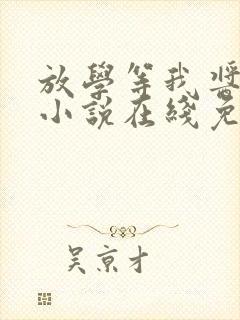 放學等我酱
小說在綫免
吴京才